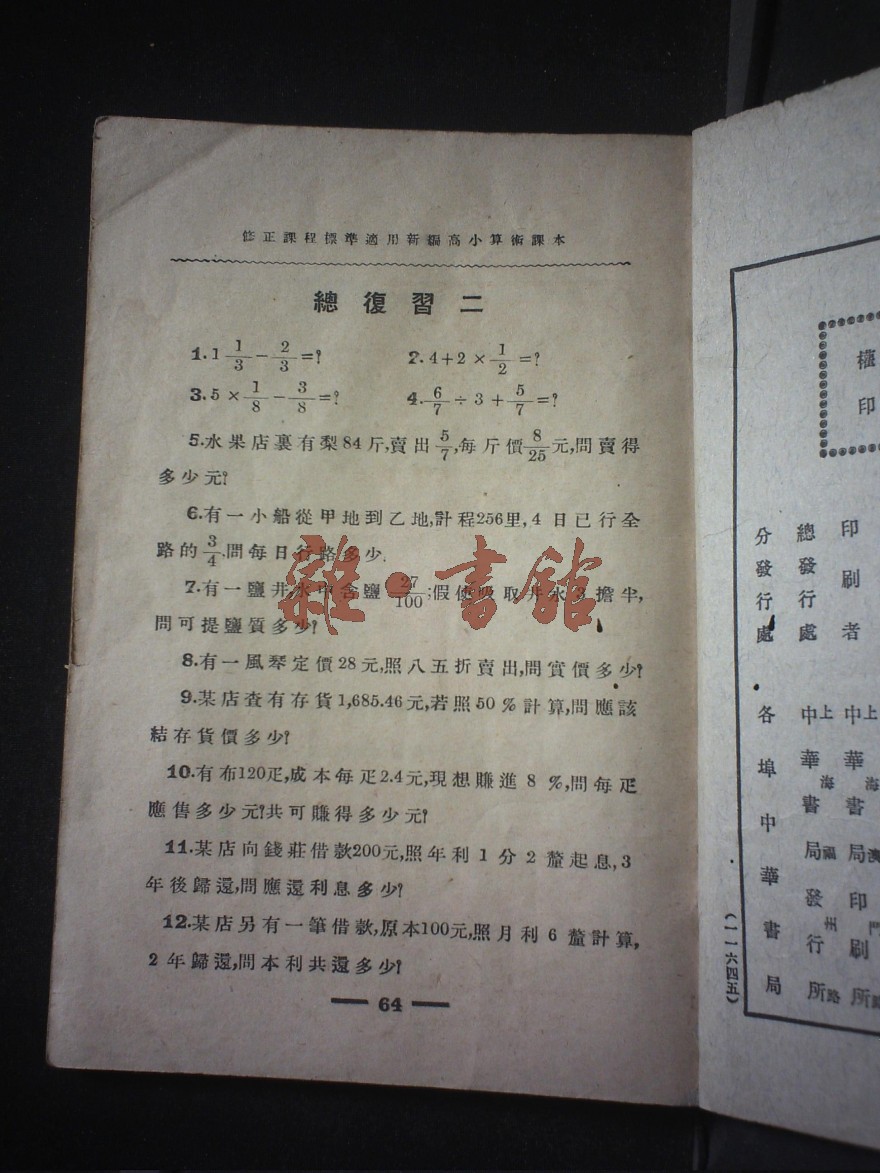 修正課程標準適用新編高小算術課本
總復習二
1. 1 1/3 − 2/3 =？ 2. 4+2 × 1/2 =？
3. 5 × 1/8 − 3/8 =？ 4. 6/7 ÷ 3 + 5/7 =？
5.水果店裏有梨84斤,賣出5/7,每斤價8/25元,問賣得
多少元？
6.有一小船從甲地到乙地,計程256里,4日已行全
路的3/4,問每日行路多少.
7.有一鹽井,水中含鹽27/100;假使吸取井水3擔半,
問可提鹽質多少？
8.有一風琴定價28元,照八五折賣出,問實價多少？
9.某店查有存貨1,685.46元,若照50%計算,問應該
結存貨價多少？
10.有布120疋,成本每疋2.4元,現想賺進8%,問每疋
應售多少元？共可賺得多少元？
11.某店向錢莊借款200元,照年利1分2釐起息,3
年後歸還,問應還利息多少？
12.某店另有一筆借款,原本100元,照月利6釐計算,
2年歸還,問本利共還多少？
64
雜·書館
權
印
印刷者
總發行處
分發行處
上海
中華書局印刷所
上海福州路
中華書局發行所
各埠中華書局
(一一六四五)